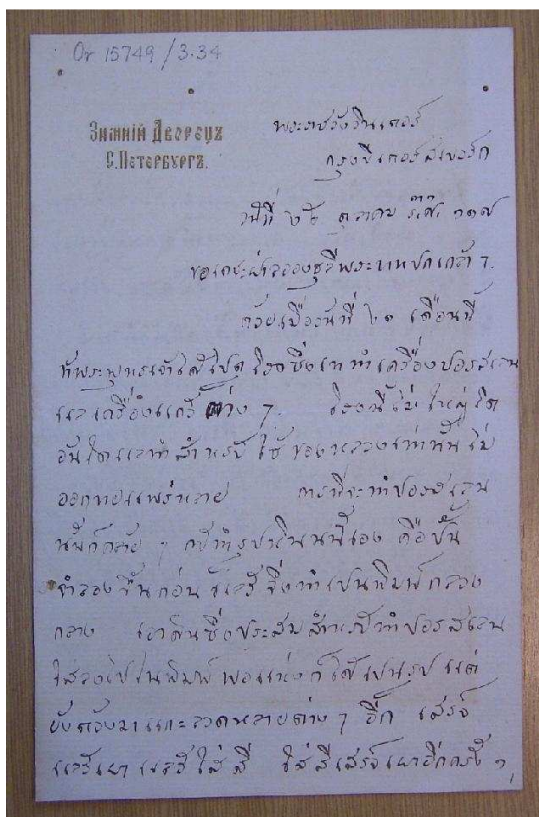 Or 15749/3.34
Зимній Дворецъ
С.Петербургъ.
พระราชวังวินเตอร์
กรุงปีเตอร์สเบอร์ก
วันที่ ๒๖ ตุลาคม ร,ศ, ๑๑๗
ขอเดชะฝ่าลอองธุลีพระบาทปกเกล้า ฯ
ด้วยเมื่อวันที่ ๒๑ เดือนนี้
ข้าพระพุทธเจ้าได้ไปดูโรงซึ่งเขาทำเครื่องปอรสเลน
แลเครื่องแก้วต่าง ๆ โรงนี้ไม่ใหญ่โต
อันใดแลทำสำหรับใช้ของหลวงเท่านั้นไม่
ออกขายแพร่หลาย การที่จะทำปอรสเลน
นั้นก็คล้าย ๆ กับทำรูป นี้เอง คือปั้น
จำลองขึ้นก่อน แล้วจึ่งทำเปนพิมพ์กลวง
กลาง เอาดินซึ่งประสมสำหรับทำปอรสเลน
ใส่ลงไปในพิมพ์ พอแห้งก็ได้เปนรูป แต่
ยังต้องมาแกะลวดลายต่าง ๆ อีก เสร็จ
แล้วเผาแล้วใส่สี ใส่สีเสร็จเผาอีกครั้ง ๑